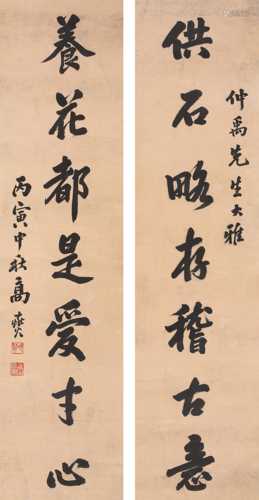 仲禹先生大雅
供石略存稽古意
養花都是愛才心
丙寅中秋高燮